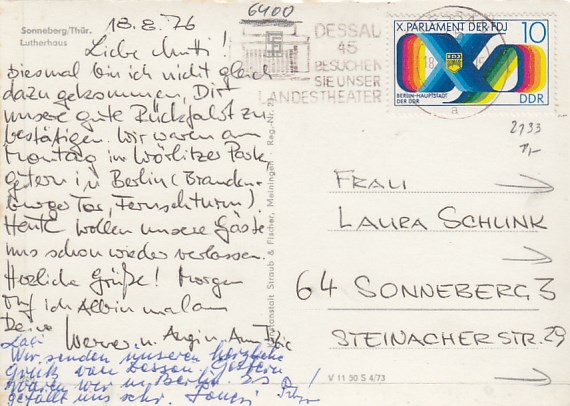 Sonneberg/Thür.
Lutherhaus
18.8.76
6400
Liebe Mutti!
Diesmal bin ich nicht gleich
dazu gekommen, Dir
unsere gute Rückfahrt zu
bestätigen. Wir waren am
Montag im Wörlitzer Park
gestern in Berlin (Branden-
burger Tor, Fernsehturm).
Heute wollen unsere Gäste
uns schon wieder verlassen.
Herzliche Grüße! Morgen
ruf ich Albin mal an
Deine Werner u.
Wir senden unseren herzliche
Gruß von Dessau, Gestern
waren wir in Berlin. Es
gefällt uns sehr.
Kunstanstalt Straub & Fischer, Meiningen · Reg.-Nr. 21
DESSAU
45
BESUCHEN
SIE UNSER
LANDESTHEATER
a
X. PARLAMENT DER FDJ
10
BERLIN-HAUPTSTADT
DER DDR
DDR
FRAU
LAURA SCHUNK
64 SONNEBERG 3
STEINACHER STR. 29
V 11 50 S 4/73